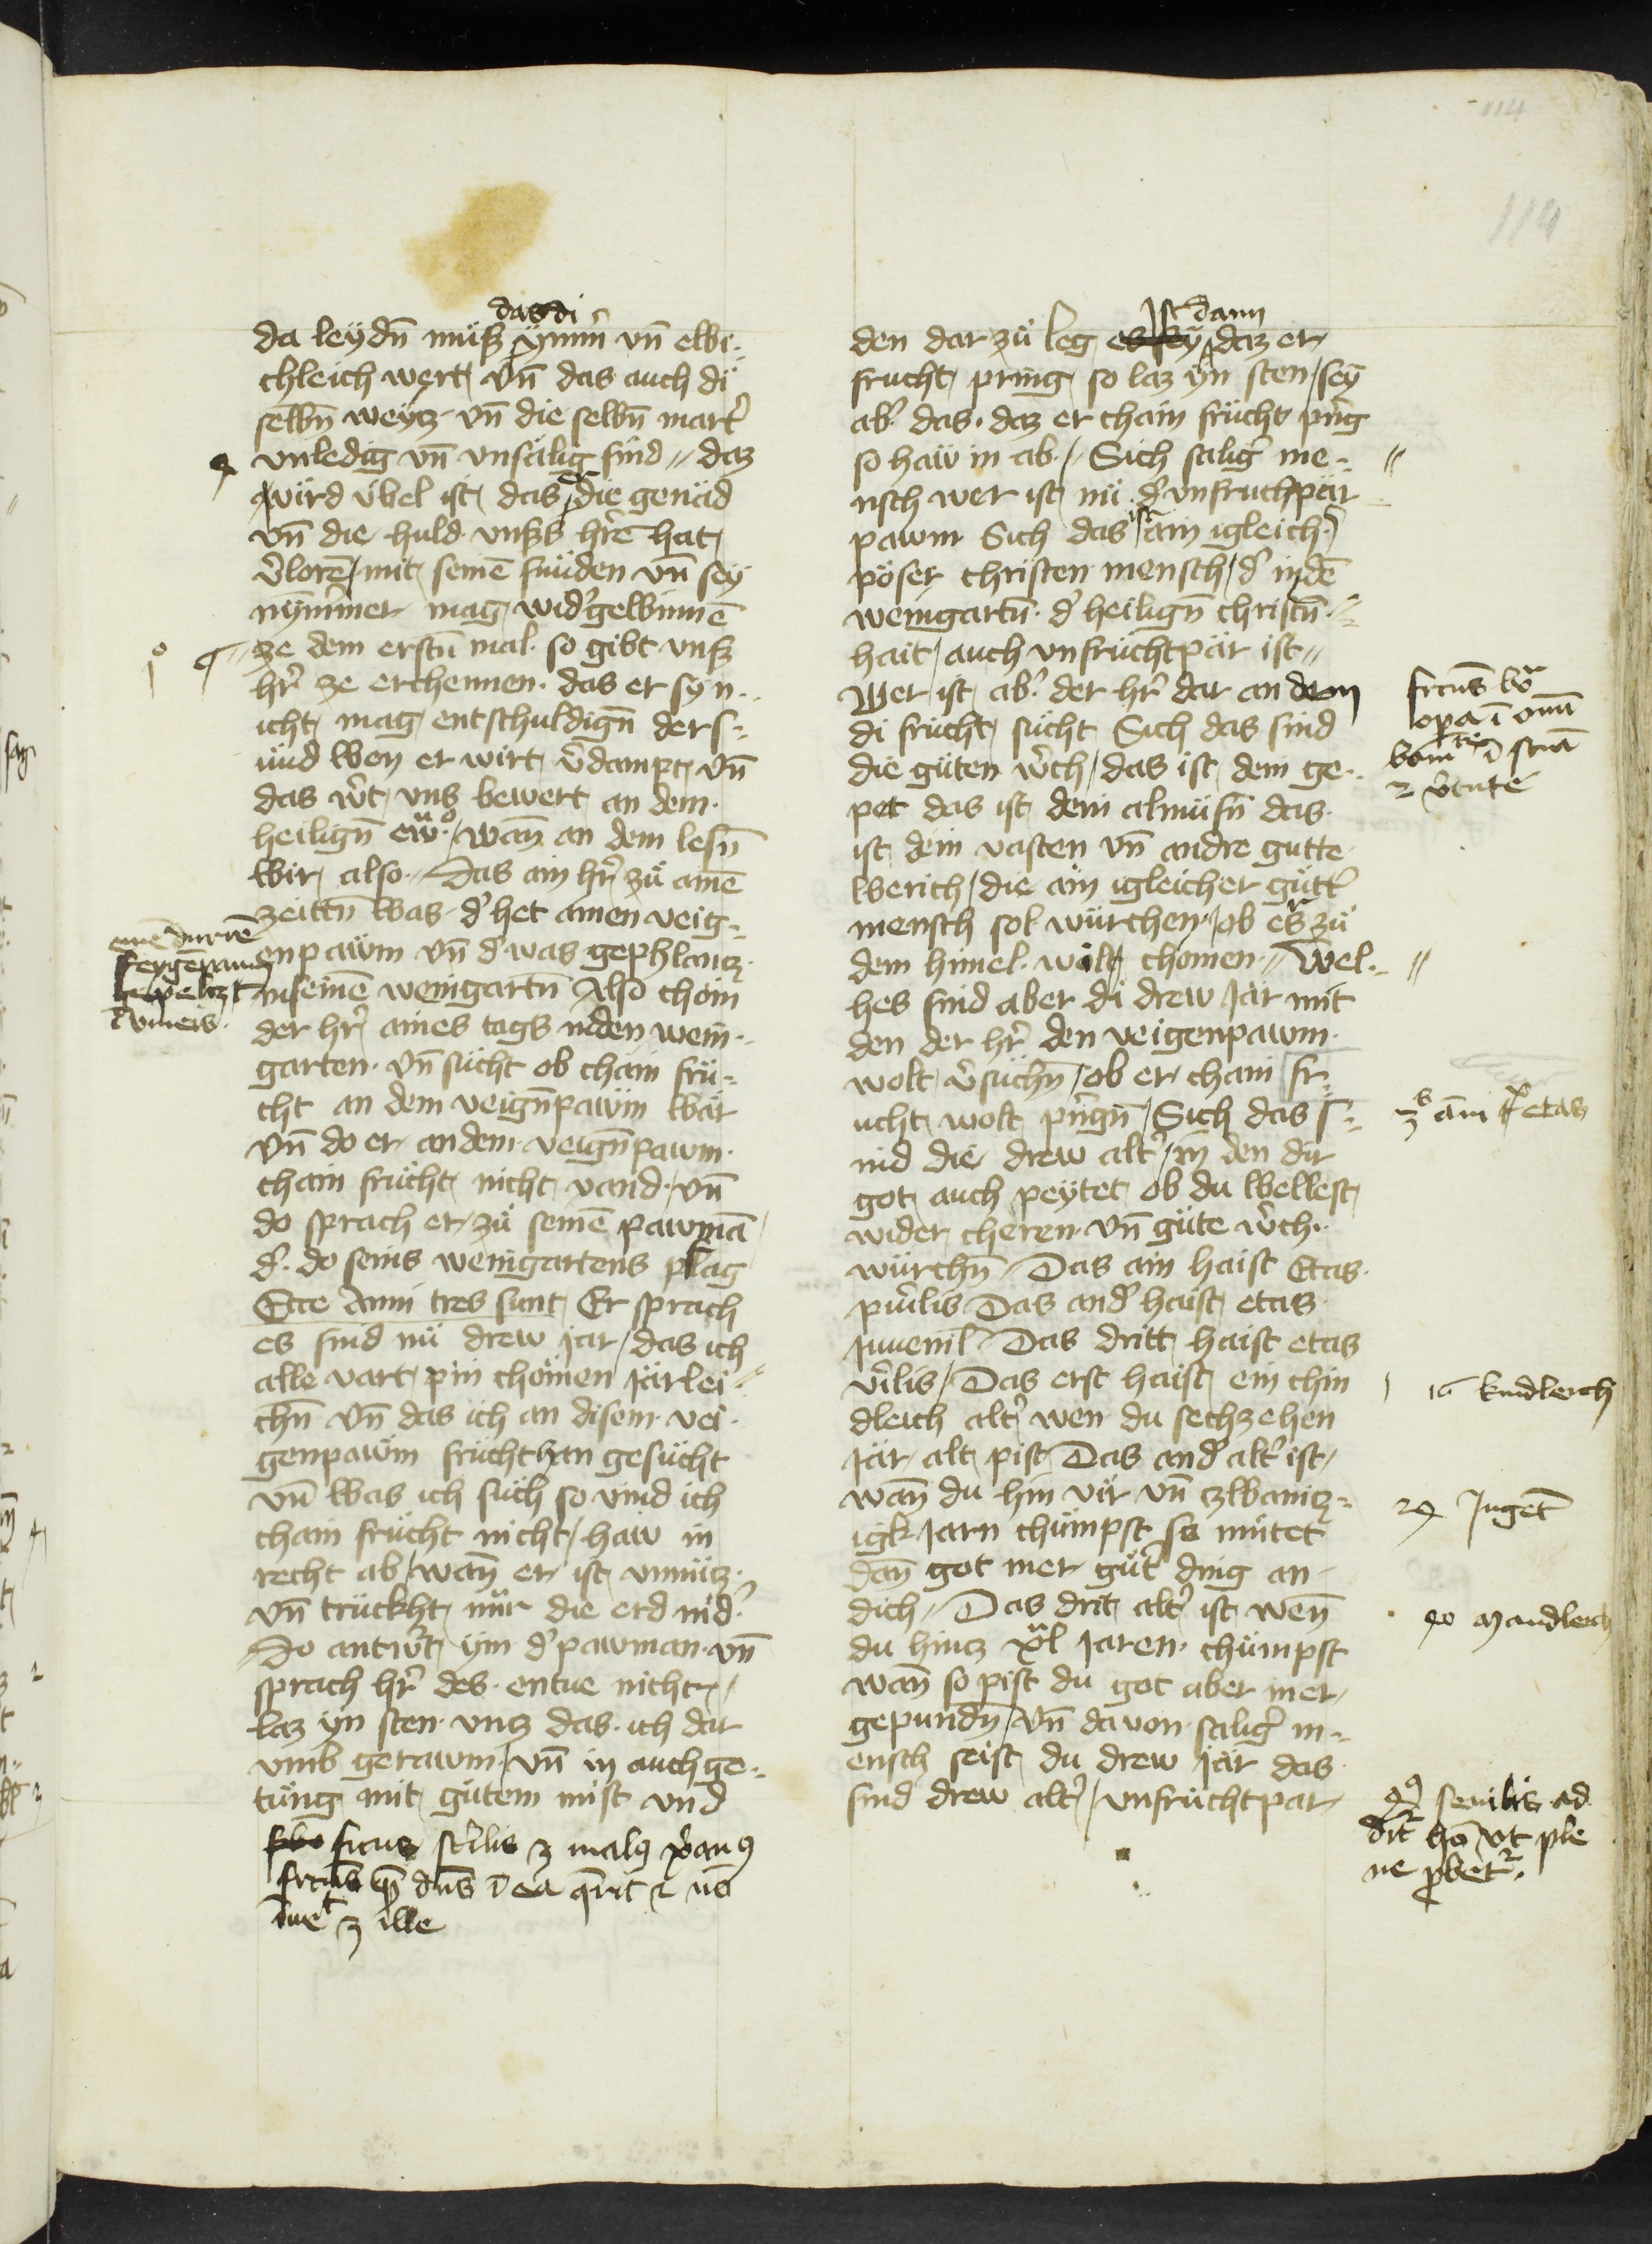 114
114
das di
da leydn̄ müss ymm̄ vn̄ elbi¬
chleich wert vn̄ das auch di
selbn̄ weytz vn̄ die selbn̄ mart̉
vnledig vn̄ vnsälig sind daz
wird v̈bel ist das er die genäd
vn̄ die huld vnsers hrē hat
v̉lorē mit seinē sünden vn̄ sey
nymmer mag wid̉gelbinnē
1º ze dem erstn̄ mal so gibt vnss
hr̉ ze erchennen das er sy n¬
icht mag entschuldign̄ der s¬
ünd wen er wirt v̉dampt vn̄
das w̉t vns bewert an dem
heilign̄ ew wan̄ an dem lesn̄
wir also Das ain hr̉ zü ainē
zeittn̄ was d̉ het ainen veig¬
enpawm vn̄ d̉ was gephlantz
inseinē weingartn̄ Also chom
der hr̉ aines tags inden wein¬
garten vn̄ sücht ob chain frü¬
cht an dem veign̄pawm wär
vn̄ do er an dem veign̄pawm
chain frücht nicht vand vn̄
do sprach er zü seinē pawmā
d̉ do seins weingartens phlag
Ecce Anni tres sunt Er sprach
es sind nü drew jar das ich
alle vart pin chömen järlei¬
chn̄ vn̄ das ich an disem vei¬
genpawm frücht han gesücht
vn̄ was ich such so vind ich
chain frücht nicht haw in
recht ab wan̄ er ist vnnütz
vn̄ trückht nür die erd nid̉
Do antw̉t ym d̉ pawman vn̄
sprach hr̉ des entue nicht
laz yn sten vntz das ich dar
vmb gerawm vn̄ in auch ge¬
tüng mit gütem mist vnd
ficus st̉ilis malus
duīs ī ea q̄rit nō
īuēt ille
ist dann
den dar zü leg es sey daz er
frucht pring so laz yn sten sey
ab̉ das daz er chain frücht p̉ng
so haw in ab Sich salig̉ me¬
nsch wer ist nü d̉ vnfruchpär
pawm Sich das ist ain igleich̉
pöser christen mensch d̉ indē
weingartn̄ d̉ heilign̄ christn̄¬
hait auch vnfrüchtpär ist
Wer ist ab̉ der hr̉ dar an dem
di frücht sücht Sich das sind
die güten w̉ch das ist dem ge¬
pet das ist dem almüsn̄ das
ist dem vasten vn̄ andre gutte
werich die ain igleicher gütt̉
mensch sol würchen ob er zü
dem himel wölt chomen Wel¬
hes sind aber di drew Jar mit
den der hr̉ den veigenpawm
wolt v̉suchn̄ ob er chain fr¬
ucht wolt p̉ngn̄ Sich das s¬
ind die drew alt̉ in den dir
got auch peytet ob du wellest
wider cheren vn̄ güte w̉ch
würchn̄ Das ain haist Etas
pu̅ilis Das and̉ haist etas
Juuenil Das dritt haist etas
v̉ilis Das erst haist ein chin
dleich alt̉ wen du sechzehen
Jär alt pist Das and̉ alt̉ ist
wan̄ du hin vür vn̄ zwaintz¬
igk Jarn chümpst so mütet
dan̄ got mer güt̉ ding an
dich Das drit alt̉ ist wen̄
du hintz xl Jaren chümpst
wan̄ so pist du got aber mer
gepundn̄ vn̄ davon salig̉ m¬
ensch seist du drew Jar das
sind drew alt̉ vnfrüchtpar
ainē dürrē
feygēpaum
gepeltzt
fructus
opera
v̉tute
etas
16 kindleich
24 Jugēt
40 Mandleich
senilis ad
dit hō vt ple
ne